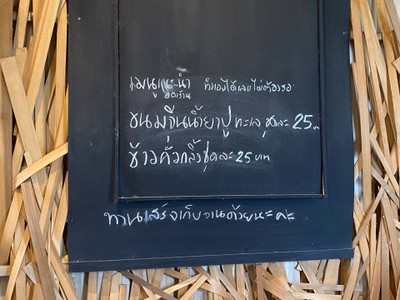 เมนูแนะนำ ทำเองได้เลยไม่ต้องรอ
ของร้าน
ขนมจีนน้ำยาปู ทะเล ชุดละ 25 บ
ข้าวคั่วกลิ้งชุดละ 25 บาท
ทานเสร็จเก็บจานด้วยนะคะ